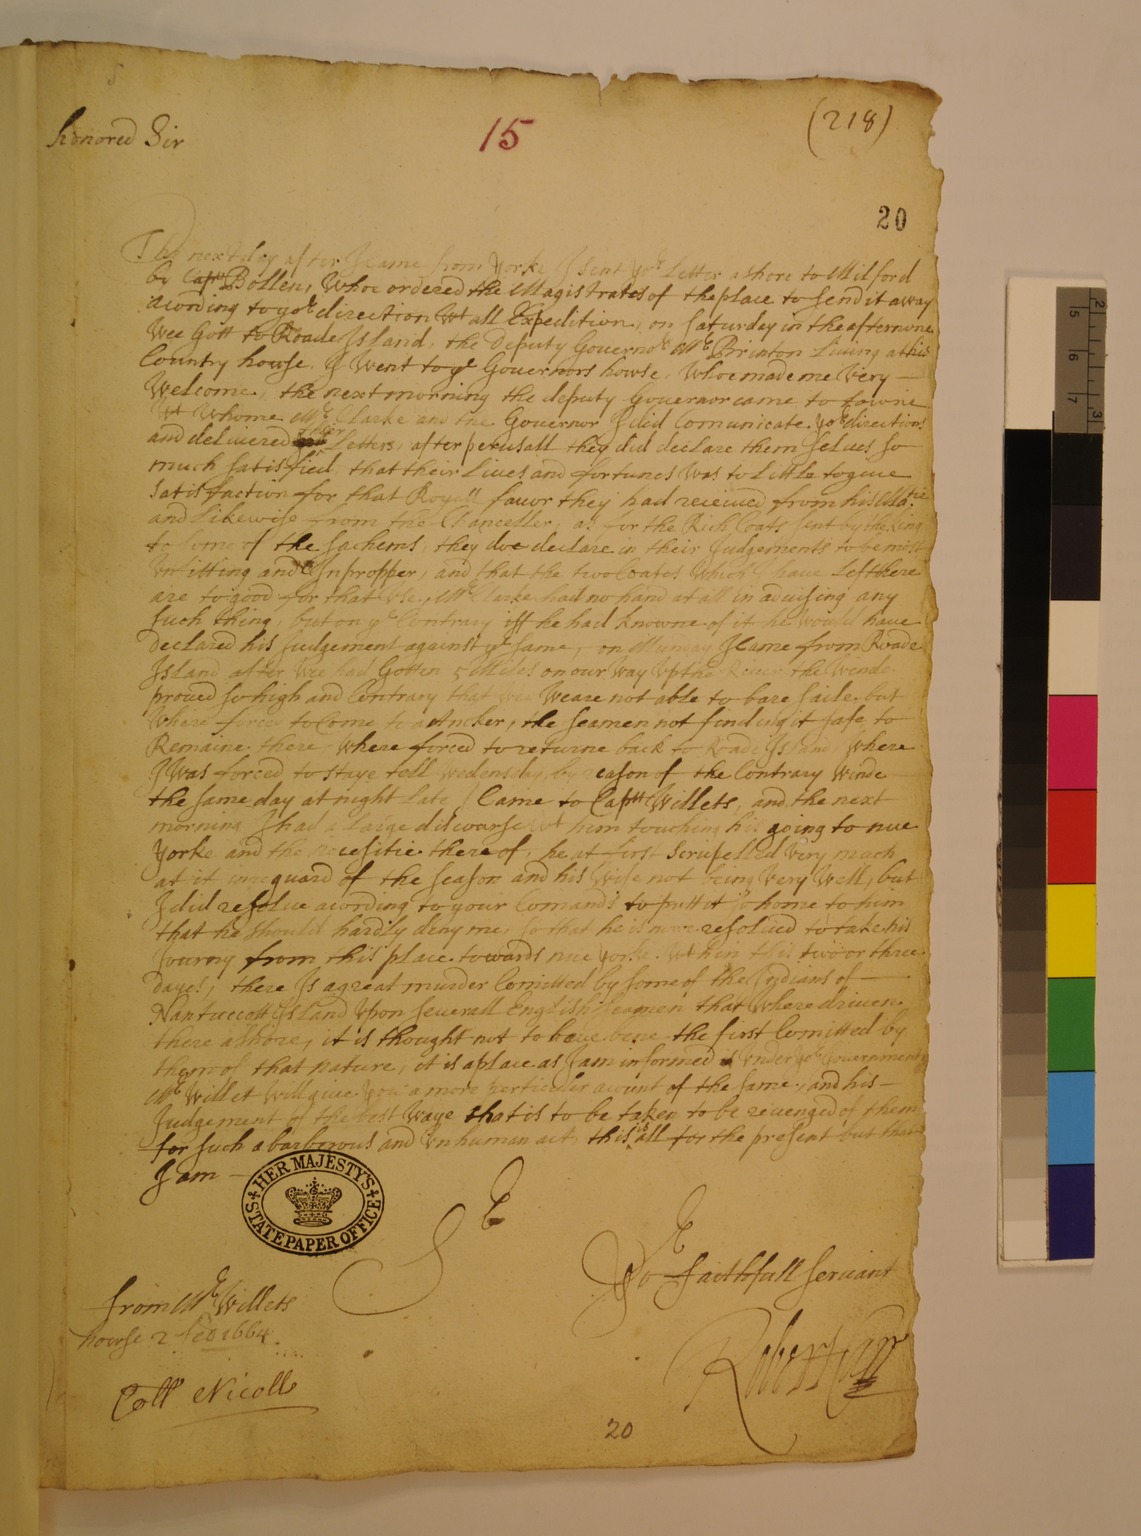 15
(218)
honored Sir
20
The next day after I Came from Yorke I sent yor Letter ashore to Milford
by Captt Bollen, Whoe ordered the Magistrates of the place to send it away
acording to yor direction wt all Expedition, on saturday in the afternone
Wee Gott to Roade Island, the deputy Governor Mr Brinton Living at his
Country howse. I Went to ye Governors howse, Whoe made me Very
Welcome, the next morning the deputy Governor came to towne
Wt Whome Mr Clarke and the Governor I did Comunicate yor directions
and delivered their Letters, after perusall they did declare them selves so
much satisfied, that their Lives and fortunes Was to Little to giue
satisfaction for that Royall fauor they had receiued from his Matie
and Likewise from the Chanceller, as for the Rich Coats sent by the King
to some of the sachems, they doe declare in their Judgements to be most
vnfitting and Inpropper, and that the two Coates Which I haue Left here
are to good for that vse, Mr Clarke had no hand at all in aduising any
such thing, but on ye Contrary iff he had knowne of it he would haue
declared his Judgement against ye same, on Munday I Came from Roade
Island after Wee had Gotten 5 Miles on our way vp the Riuer the Winde
proued so high and Contrary that wee Weare not able to bare saile but
Where forced to Come to a Ancker, the seamen not finding it safe to
Remaine there Where forced to returne back to Roade Island, Where
I Was forced to staye tell Wedensday, by reason of the Contrary Winde
the same day at night Late I Came to Captt Willets, and the next
morning I had a Large discourse wt him touching his going to nue
Yorke and the necesitie there of, he at first scrupelled Very much
at it in reguard of the season and his Wife not being Very Well, but
I did resolue acording to your Comands to putt it so home to him
that he should hardly deny me, so that he is now resolued to take his
Journy from this place towards nue yorke wthin this two or three
dayes, there Is a great murder Comitted by some of the Indians of
Nantuccott Island Vpon seuerall English seamen that Where driuen
there ashore, it is thought not to haue bene the first Comitted by
them of that nature, it is a place as I am informed Vnder yor Gouernment
Mr Willet Will giue you a more perticuler acount of the same, and his
Judgement of the best Waye that is to be taken to be reuenged of them
for such a barberous and Vnhuman act, this is all for the present but that
I am
HER MAJESTY'S
STATE PAPER OFFICE
Sr
Yor faithfull seruant
Robert Carr
from Mr Willets
howse 2 feb 1664
Coll Nicolls
20